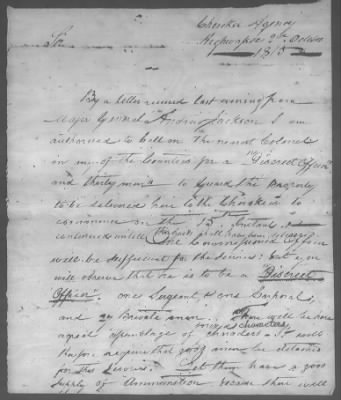 Cherokee Agency
Highwassee 9th October
Sir 1813
By a letter received last evening from
Major General Andrew Jackson I am
authorised to call on the nearest Colonel
in one of the Counties for a "Discreet Officer"
and thirty men to Guard the Property
to be delivered here to the Cherokees to
commence on the 15th Instant &
continued untill the goods shall have been delivered
One Commissioned Officer
will be sufficient for the service: but you
will observe that he is to be a "Discreet
Officer." one Sergeant & one Corporal,
and Private men. There will be here
a great assemblage of characters
therefore require that good men be detached
for this service. Let them have a good
supply of Ammunition because there will